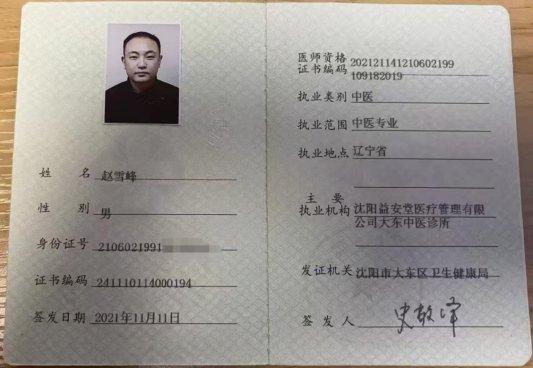 姓名 赵雪峰
性别 男
身份证号 2106021991
证书编码 241110114000194
签发日期 2021年11月11日
医师资格 202121141210602199
证书编码 109182019
执业类别 中医
执业范围 中医专业
执业地点 辽宁省
主要 沈阳益安堂医疗管理有限
执业机构 公司大东中医诊所
发证机关 沈阳市大东区卫生健康局
签发人 史敬泽